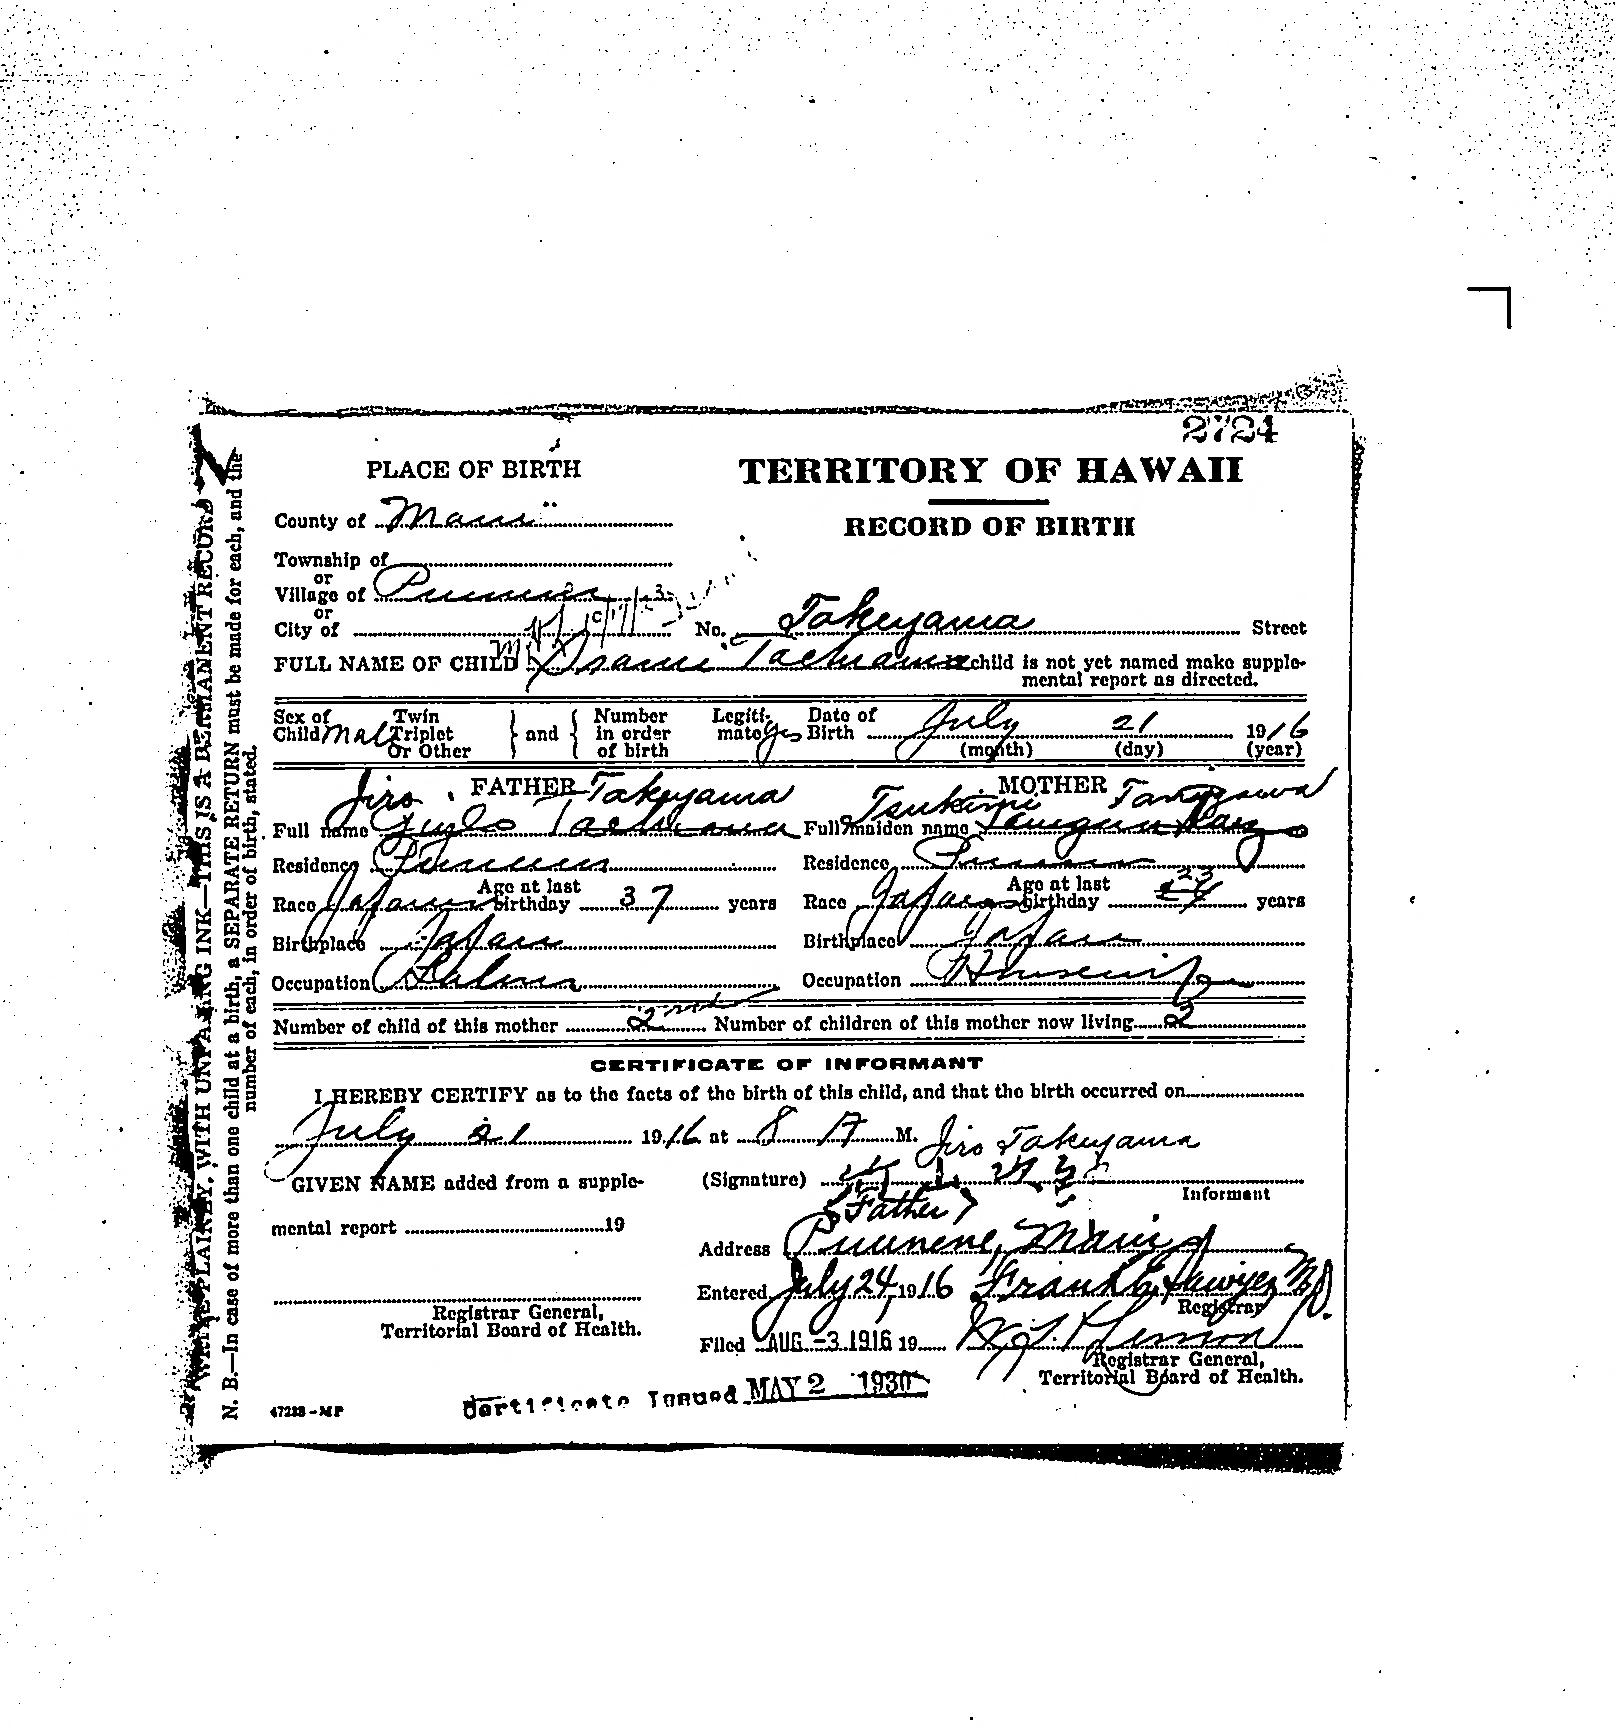 2724
PLACE OF BIRTH
TERRITORY OF HAWAII
RECORD OF BIRTH
County of Maui
Township of
or
Village of Puunene
or
City of
No. Takeyama Street
FULL NAME OF CHILD child is not yet named make supple-
mental report as directed.
Sex of Child Male Twin Triplet Or Other } and { Number in order of birth Legiti- mate Yes Date of Birth July 21 1916
(month) (day) (year)
FATHER
Jiro Takeyama
Full name
Residence Puunene
Race Japanese Age at last birthday 37 years
Birthplace Japan
Occupation Labor
MOTHER
Tsukimi
Full maiden name
Residence Puunene
Race Japanese Age at last birthday 23 years
Birthplace Japan
Occupation Housewife
Number of child of this mother 2nd Number of children of this mother now living 2
CERTIFICATE OF INFORMANT
I HEREBY CERTIFY as to the facts of the birth of this child, and that the birth occurred on
July 21 1916 at 8 A M.
Jiro Takeyama
(Signature)
Informant
(Father)
Address Puunene, Maui
Entered July 24, 1916 Frank E. Sawyer M.D.
Registrar
Filed AUG -3 1916 19
Registrar General,
Territorial Board of Health.
GIVEN NAME added from a supple-
mental report 19
Registrar General,
Territorial Board of Health.
47233-MP
Certificate Issued MAY 2 1930
WRITE PLAINLY, WITH UNFADING INK—THIS IS A PERMANENT RECORD
N. B.—In case of more than one child at a birth, a SEPARATE RETURN must be made for each, and the
number of each, in order of birth, stated.